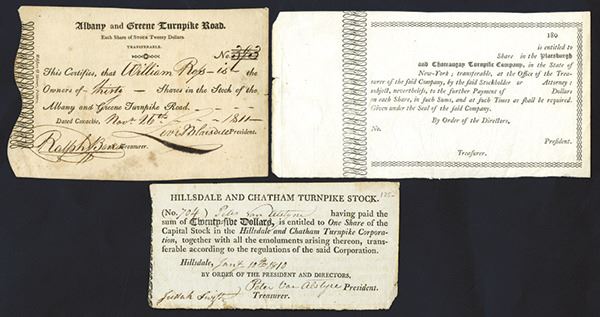 Albany and Greene Turnpike Road.
Each Share of Stock Twenty Dollars
TRANSFERABLE.
No.
This Certifies, that William Ross - is the
Owners of thirty - Shares in the Stock of the
Albany and Greene Turnpike Road.
Dated Coxsackie, Nov. 26th 1811
President.
Treasurer.
180
is entitled to
Share in the Plattsburgh
and Chateaugay Turnpike Company, in the State of
New-York; transferable, at the Office of the Trea-
surer of the said Company, by the said Stockholder or Attorney:
subject, nevertheless, to the further Payment of Dollars
on each Share, in such Sums, and at such Times as shall be required.
Given under the Seal of the said Company.
By Order of the Directors,
No.
Treasurer.
HILLSDALE AND CHATHAM TURNPIKE STOCK.
(No. 704) Peter Van Alstyne having paid the
sum of Twenty-five Dollars, is entitled to One Share of the
Capital Stock in the Hillsdale and Chatham Turnpike Corpora-
tion, together with all the emoluments arising thereon, trans-
ferable according to the regulations of the said Corporation.
Hillsdale, Jany. 10th 1810
BY ORDER OF THE PRESIDENT AND DIRECTORS,
Peter Van Alstyne President.
Treasurer.